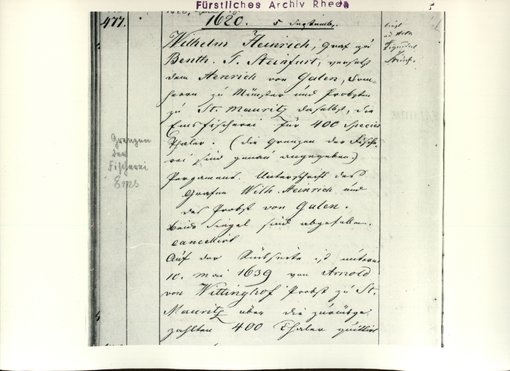 Fürstliches Archiv Rheda
477.
1620. 5 Septemb.
Wilhelm Heinrich, Graf zu
Benth. T. Steinfurt, versetzt
dem Henrich von Galen, Dom-
herrn zu Münster und Probsten
zu St. Mauritz daselbst, die
Emsfischerei für 400 Species
Thaler. (Die Grenzen der Fische-
rei sind genau angegeben)
Pergament. Unterschrift des
Grafen Wilh. Heinrich und
des Probst von Galen.
Beide Siegel sind abgefallen.
cancellirt
Auf der Rückseite ist unterm
10. Mai 1639 von Arnold
von Vittinghof Probst zu St.
Mauritz über die zurückge-
zahlten 400 Thaler quittirt
Grenzen
der
Fischerei
Ems